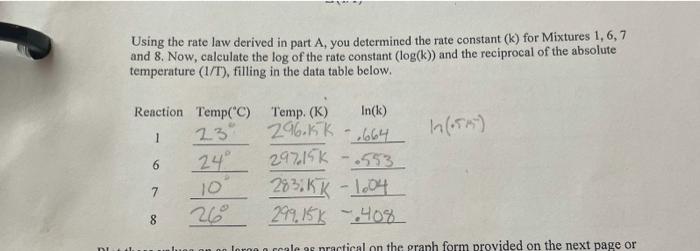 Using the rate law derived in part A, you determined the rate constant (k) for Mixtures 1, 6, 7
and 8. Now, calculate the log of the rate constant (log(k)) and the reciprocal of the absolute
temperature (1/T), filling in the data table below.
Reaction Temp(°C) Temp. (K) ln(k)
1 23° 296.15K -.664
6 24° 297.15K -.553
7 10° 283.15K -1.04
8 26° 299.15K -.408
scale as practical on the graph form provided on the next page or